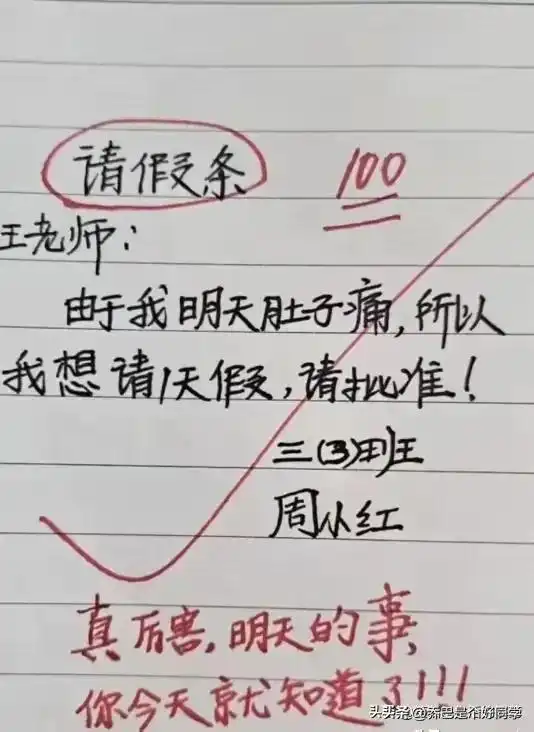 请假条
100
王老师：
由于我明天肚子痛，所以
我想请1天假，请批准！
三(3)班
周小红
真厉害，明天的事，
你今天就知道了!!!